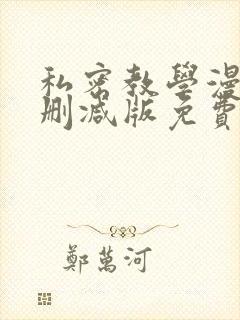 私密教學漫
刪減版免費
鄭萬河